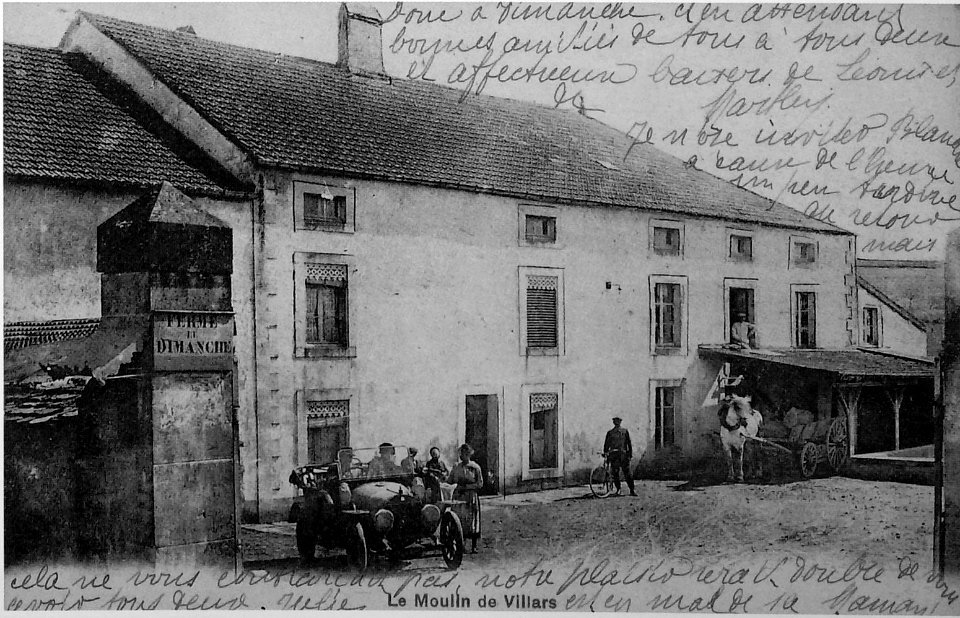 Donc à Dimanche. et en attendant
bonnes amitiés de tous à tous deux
et affectueux baisers de Léonie et
de
Je n'ose inviter Blanche
à cause de l'heure
un peu tardive
du retour
mais
FERME
LE
DIMANCHE
cela ne vous contrariant pas, notre plaisir serait double de vous
avoir tous deux. Julie est en mal de sa Maman
Le Moulin de Villars